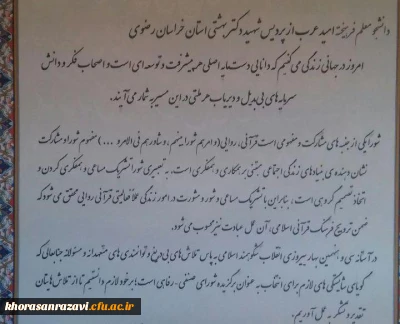 دانشجو معلم فرهیخته امید عرب از پردیس شهید دکتر بهشتی استان خراسان رضوی
امروز در جهانی زندگی می کنیم که دانایی دستمایه اصلی هر پیشرفت و توسعه ای است و اصحاب فکر و دانش
سرمایه های بی بدیل و دیریاب هر ملتی در این مسیر به شمار می آیند.
شورا یکی از جنبه های مشارکت و مفهومی است قرآنی، روایی (و امرهم شورا بینهم، و شاورهم فی الامر و ...) مفهوم شورا و مشارکت
نشان دهنده ی بنیادهای زندگی اجتماعی مبتنی بر همکاری و همفکری است. به تعبیری شورا تشریک مساعی و همفکری کردن و
اتخاذ تصمیم گروهی است، بنابراین با تشریک مساعی و شور و مشورت در امور زندگی عملاً فعالیتی قرآنی روایی محقق می شود که
ضمن ترویج فرهنگ قرآنی اسلامی، آن عمل عبادت نیز محسوب می شود.
در آستانه سی و هشتمین بهار پیروزی انقلاب شکوهمند اسلامی به پاس تلاش های بی دریغ و توانمندی های متعهدانه و مسئولانه جنابعالی که
گویای شایستگی های لازم برای انتخاب به عنوان برگزیده شورای صنفی-رفاهی است؛ بر خود لازم دانستیم تا از تلاش هایتان
تقدیر و تشکر به عمل آوریم.
khorasanrazavi.cfu.ac.ir